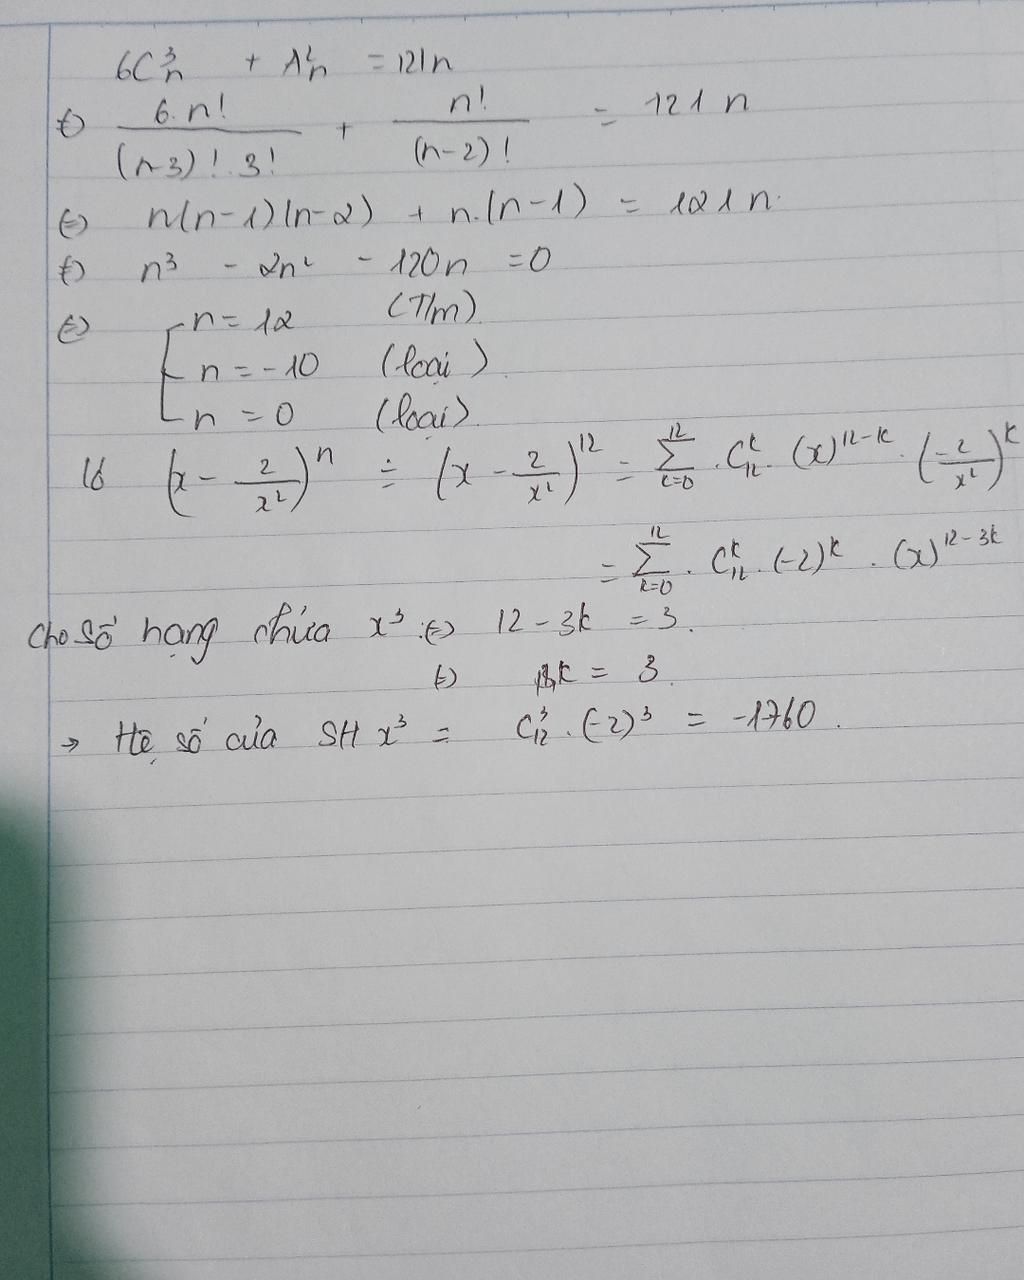 6C³ₙ + A²ₙ = 121n
⇔ 6.n!/((n-3)!.3!) + n!/((n-2)!) = 121n
⇔ n(n-1)(n-2) + n.(n-1) = 121n.
⇔ n³ - 2n² - 120n = 0
⇔ [ n = 12 (T/m)
n = -10 (loại).
n = 0 (loại).
(x - 2/x²)ⁿ = (x - 2/x²)¹² = Σ_{k=0}^{12} . C₁₂ᵏ . (x)¹²⁻ᵏ . (-2/x²)ᵏ
= Σ_{k=0}^{12} . C₁₂ᵏ . (-2)ᵏ . (x)¹²⁻³ᵏ
Cho số hạng chứa x³ :⇔ 12 - 3k = 3.
⇔ k = 3.
→ Hệ số của SH x³ = C₁₂³ . (-2)³ = -1760.